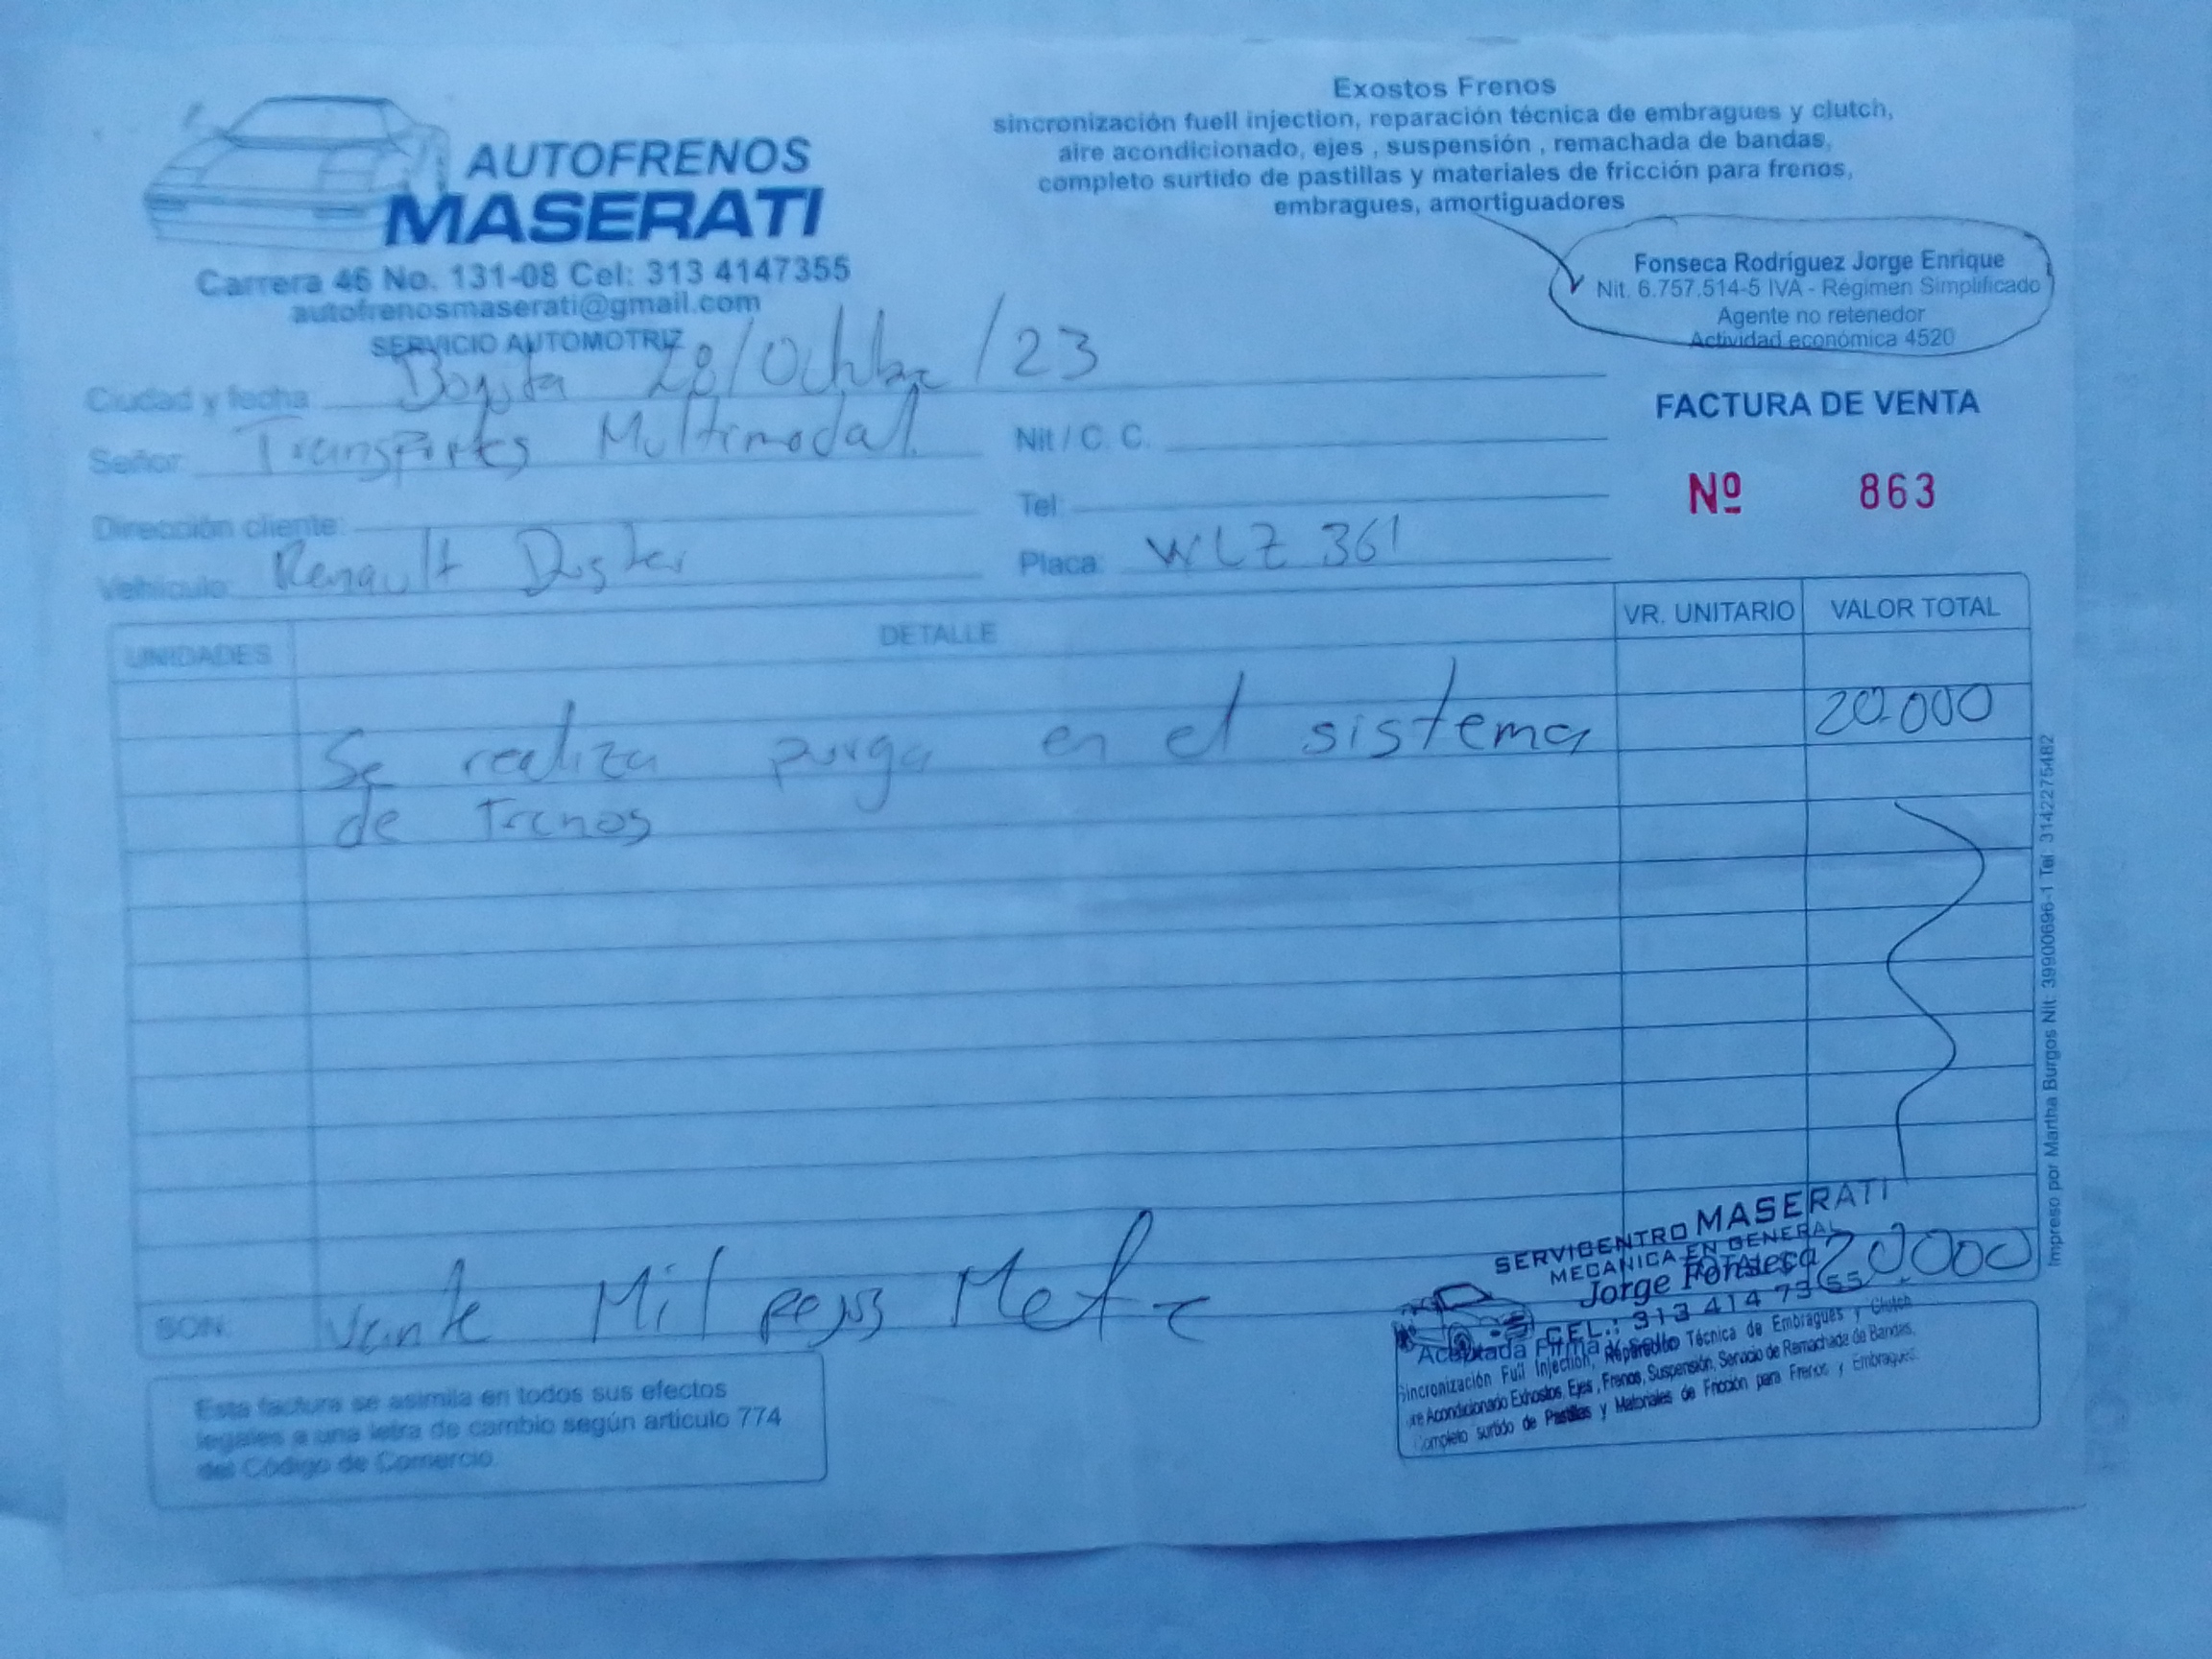 AUTOFRENOS
MASERATI
Carrera 46 No. 131-08 Cel: 313 4147355
autofrenosmaserati@gmail.com
SERVICIO AUTOMOTRIZ
Exostos Frenos
sincronización fuell injection, reparación técnica de embragues y clutch,
aire acondicionado, ejes , suspensión , remachada de bandas,
completo surtido de pastillas y materiales de fricción para frenos,
embragues, amortiguadores
Fonseca Rodríguez Jorge Enrique
Nit. 6.757.514-5 IVA - Régimen Simplificado
Agente no retenedor
Actividad económica 4520
Ciudad y fecha: Bogota 28/Octubre/23
Señor: Transportes Multimodal.
Nit / C. C.
FACTURA DE VENTA
Nº 863
Dirección cliente:
Tel:
Vehículo: Renault Duster
Placa: WLZ 361
UNIDADES DETALLE VR. UNITARIO VALOR TOTAL
Se realiza purga en el sistema 20.000
de frenos
SERVICENTRO MASERATI
MECANICA EN GENERAL
Jorge Fonseca
TOTAL $ 20.000
CEL.: 313 414 73 55
SON: Veinte Mil pesos Mcte
Aceptada Firma y Sello
Sincronización Full Injection, Reparación Técnica de Embragues y Clutch
Aire Acondicionado Exhostos, Ejes, Frenos, Suspensión, Servicio de Remachada de Bandas,
Completo surtido de Pastillas y Materiales de Fricción para Frenos y Embragues.
Esta factura se asimila en todos sus efectos
legales a una letra de cambio según articulo 774
del Código de Comercio.
Impreso por Martha Burgos Nit: 39900696-1 Tel: 3142275482